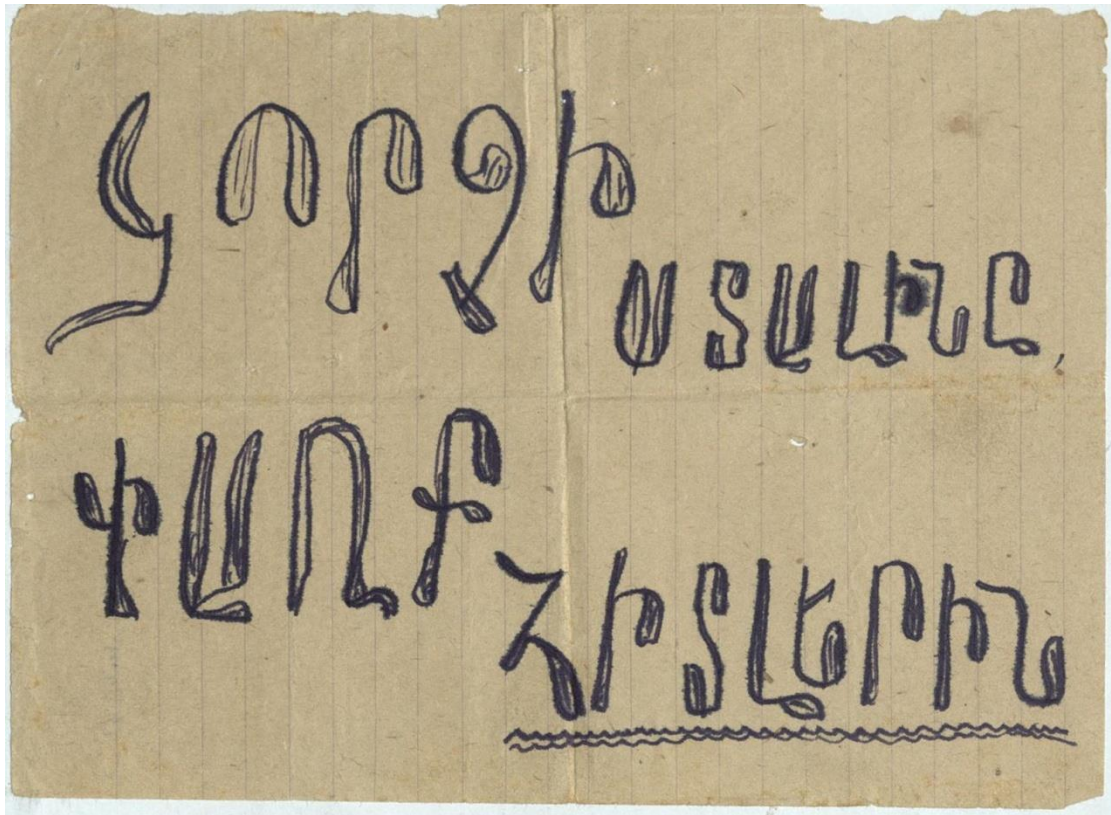 ԿՈՐՉԻ
ՍՏԱԼԻՆԸ,
ՓԱՌՔ
ՀԻՏԼԵՐԻՆ